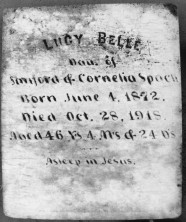 LUCY BELLE
Dau. of
Sanford & Cornelia Spach
Born June 4, 1872.
Died Oct. 28, 1918
Aged 46 Ys 4 Ms & 24 Ds
Asleep in Jesus.